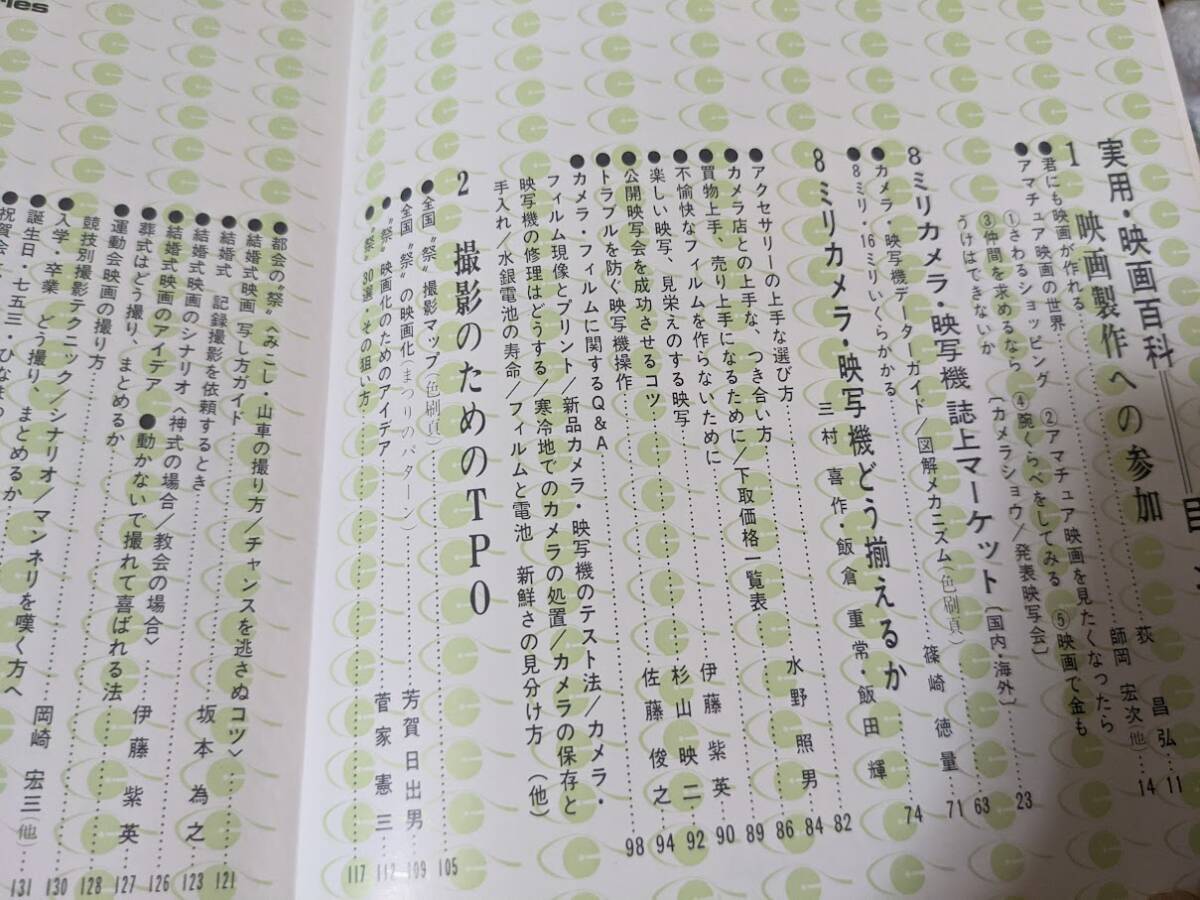 ries
実用・映画百科
1 映画製作への参加
●君にも映画が作れる……荻 昌弘…11
●アマチュア映画の世界……師岡 宏次(他)…14
①さわるショッピング ②アマチュア映画を見たくなったら
③仲間を求めるなら ④腕くらべをしてみる ⑤映画で金も
うけはできないか 〔カメラショウ/発表映写会〕……23
8ミリカメラ・映写機 誌上マーケット〔国内・海外〕……63
●カメラ・映写機データーガイド/図解メカニズム(色刷頁)……篠崎 徳量…71
●8ミリ・16ミリいくらかかる……74
8ミリカメラ・映写機どう揃えるか
三村 喜作・飯倉 重常・飯田 輝…82
●アクセサリーの上手な選び方……水野 照男…84
●カメラ店との上手な、つき合い方……86
●買物上手、売り上手になるために/下取価格一覧表……89
●不愉快なフィルムを作らないために……伊藤 紫英…90
●楽しい映写、見栄えのする映写……杉山 映二…92
●公開映写会を成功させるコツ……佐藤 俊之…94
●トラブルを防ぐ映写機操作……98
●カメラ・フィルムに関するQ&A
フィルム現像とプリント/新品カメラ・映写機のテスト法/カメラ・
映写機の修理はどうする/寒冷地でのカメラの処置/カメラの保存と
手入れ/水銀電池の寿命/フィルムと電池 新鮮さの見分け方(他)
2 撮影のためのTPO
●全国〝祭〟撮影マップ(色刷頁)……105
●全国〝祭〟の映画化(まつりのパターン)……芳賀日出男…109
●〝祭〟映画化のためのアイデア……菅家 憲三…112
●〝祭〟30選・その狙い方……117
●都会の〝祭〟〈みこし・山車の撮り方/チャンスを逃さぬコツ〉……121
●結婚式映画 写し方ガイド……坂本 為之…123
●結婚式 記録撮影を依頼するとき……126
●結婚式映画のシナリオ〈神式の場合/教会の場合〉……伊藤 紫英…127
●葬式はどう撮り、まとめるか ●動かないで撮れて喜ばれる法……128
●運動会映画の撮り方
競技別撮影テクニック/シナリオ/マンネリを嘆く方へ……岡崎 宏三(他)…130
●入学・卒業 どう撮り、まとめるか……131
●誕生日・七五三・ひなまつ